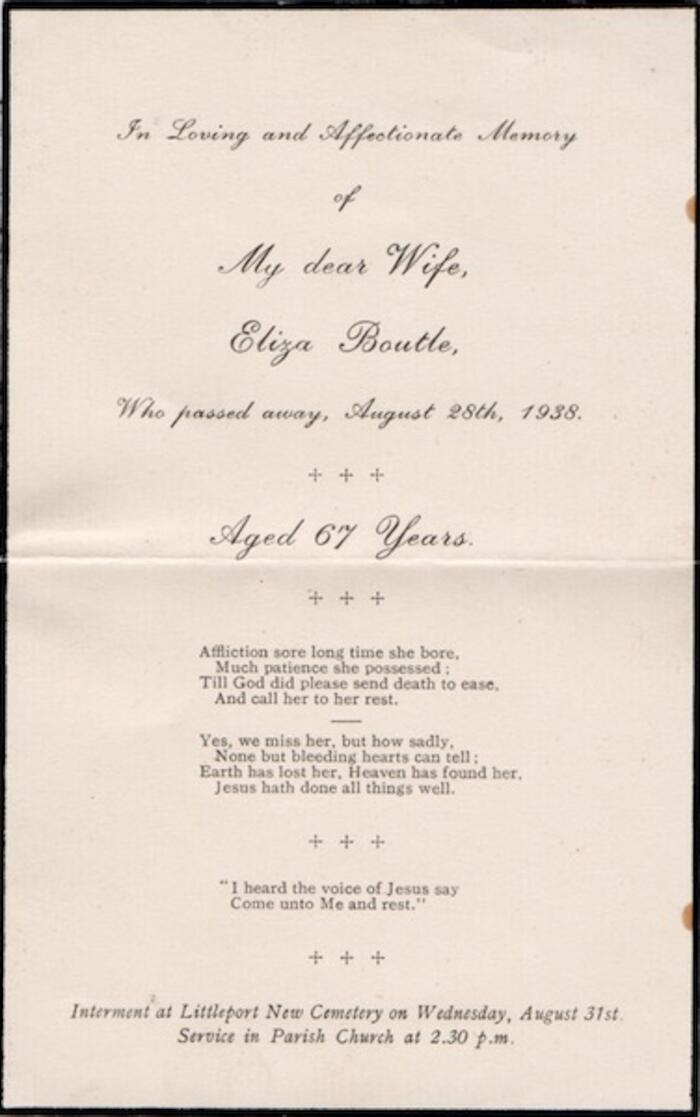 In Loving and Affectionate Memory
of
My dear Wife,
Eliza Boutle,
Who passed away, August 28th, 1938.
Aged 67 Years.
Affliction sore long time she bore,
Much patience she possessed ;
Till God did please send death to ease,
And call her to her rest.
Yes, we miss her, but how sadly,
None but bleeding hearts can tell ;
Earth has lost her, Heaven has found her,
Jesus hath done all things well.
"I heard the voice of Jesus say
Come unto Me and rest."
Interment at Littleport New Cemetery on Wednesday, August 31st.
Service in Parish Church at 2.30 p.m.